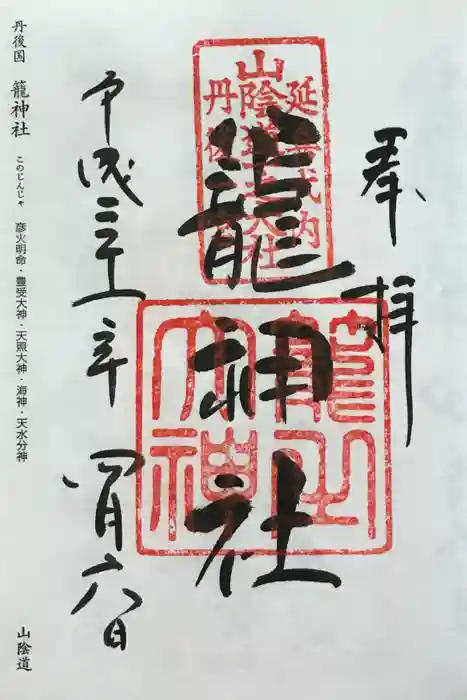 奉拝
延喜式内
籠神社
平成三十一年
四月六日
丹後国 籠神社 このじんじゃ 彦火明命・豊受大神・天照大神・海神・天水分神
山陰道